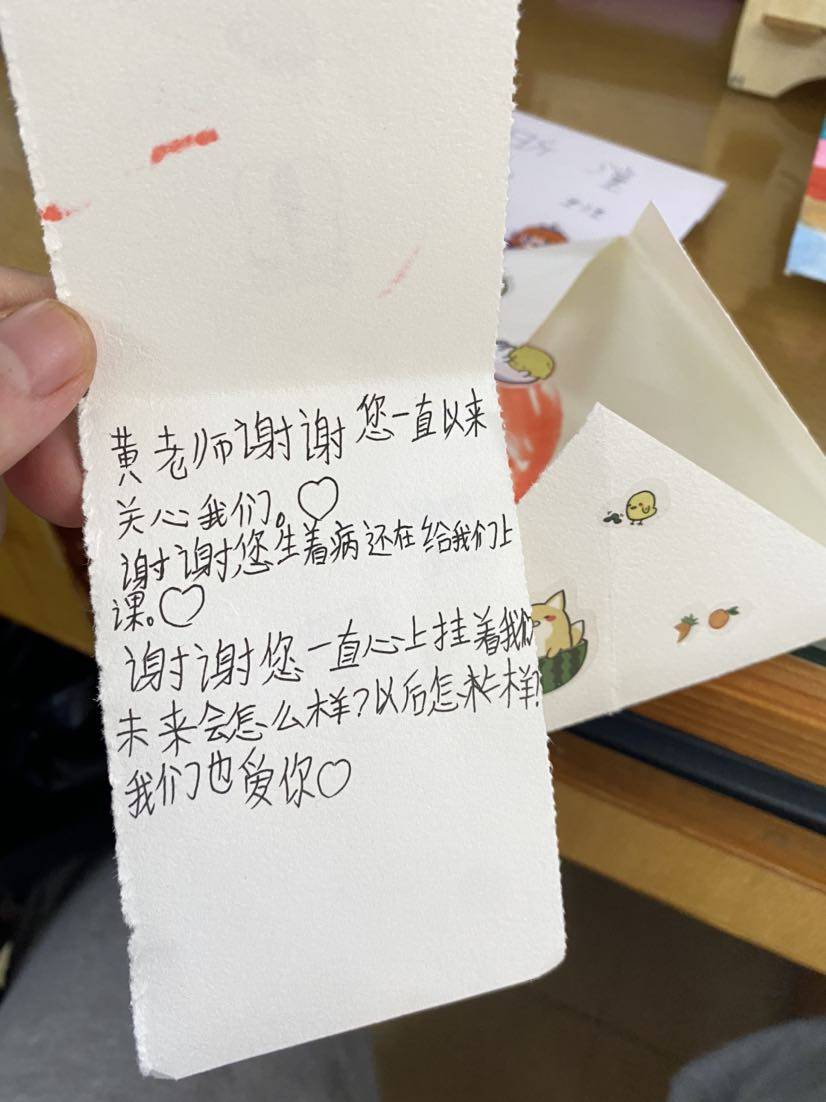 黄老师谢谢您一直以来
关心我们。♡
谢谢您生着病还在给我们上
课。♡
谢谢您一直心上挂着我们
未来会怎么样?以后怎么样?
我们也爱你♡